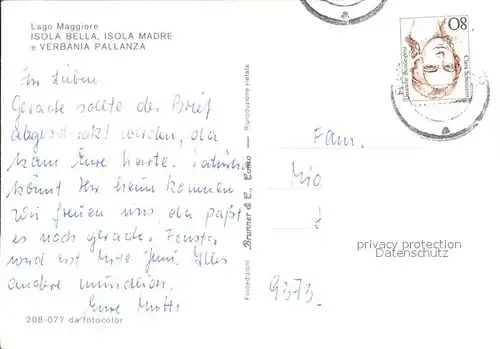 Lago Maggiore
ISOLA BELLA, ISOLA MADRE
e VERBANIA PALLANZA
Ihr Lieben
Gerade sollte der Brief
abgeschickt werden, da
kam Eure Karte. Natürlich
könnt Ihr heim kommen
Wir freuen uns, da paßt
es noch gerade. Fenster
wird erst Mitte Juni. Alles
andere mündlich.
Eure Mutti
208-077 da fotocolor
Fotoedizioni Brunner & C., Como — Riproduzione vietata
80
Deutsche Bundespost
Clara Schumann
Fam.
Mio
J
privacy protection
Datenschutz
9373